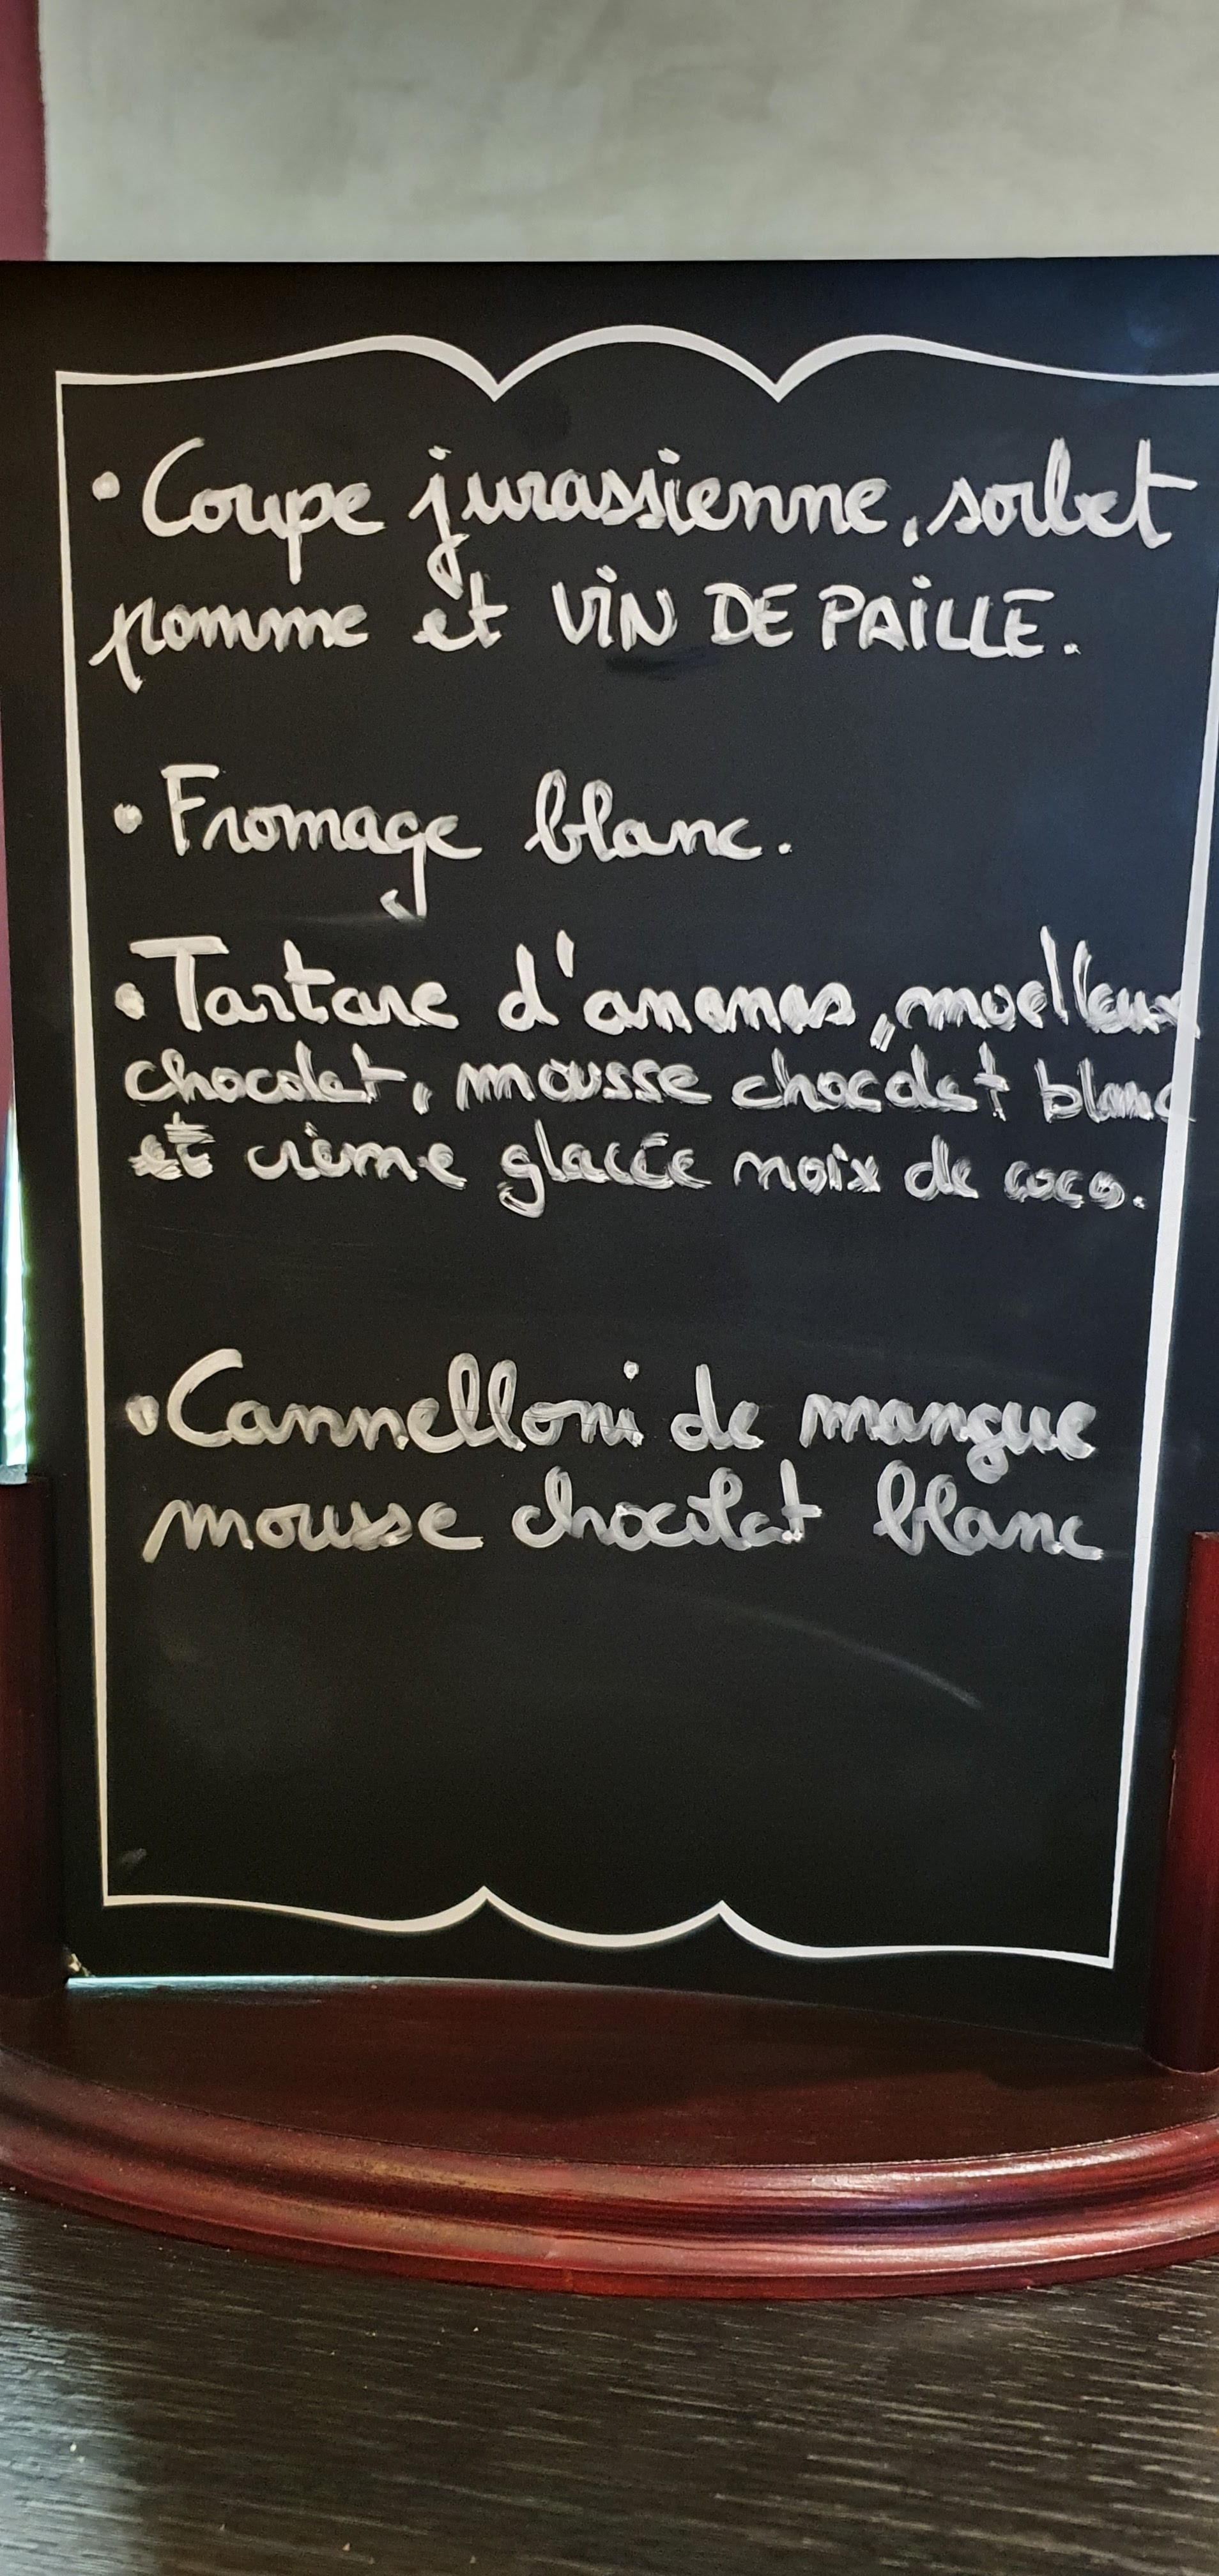 • Coupe jurassienne, sorbet
pomme et VIN DE PAILLE.
• Fromage blanc.
• Tartare d'ananas, moelleux
chocolat, mousse chocolat blanc
et crème glacée noix de coco.
• Cannelloni de mangue
mousse chocolat blanc